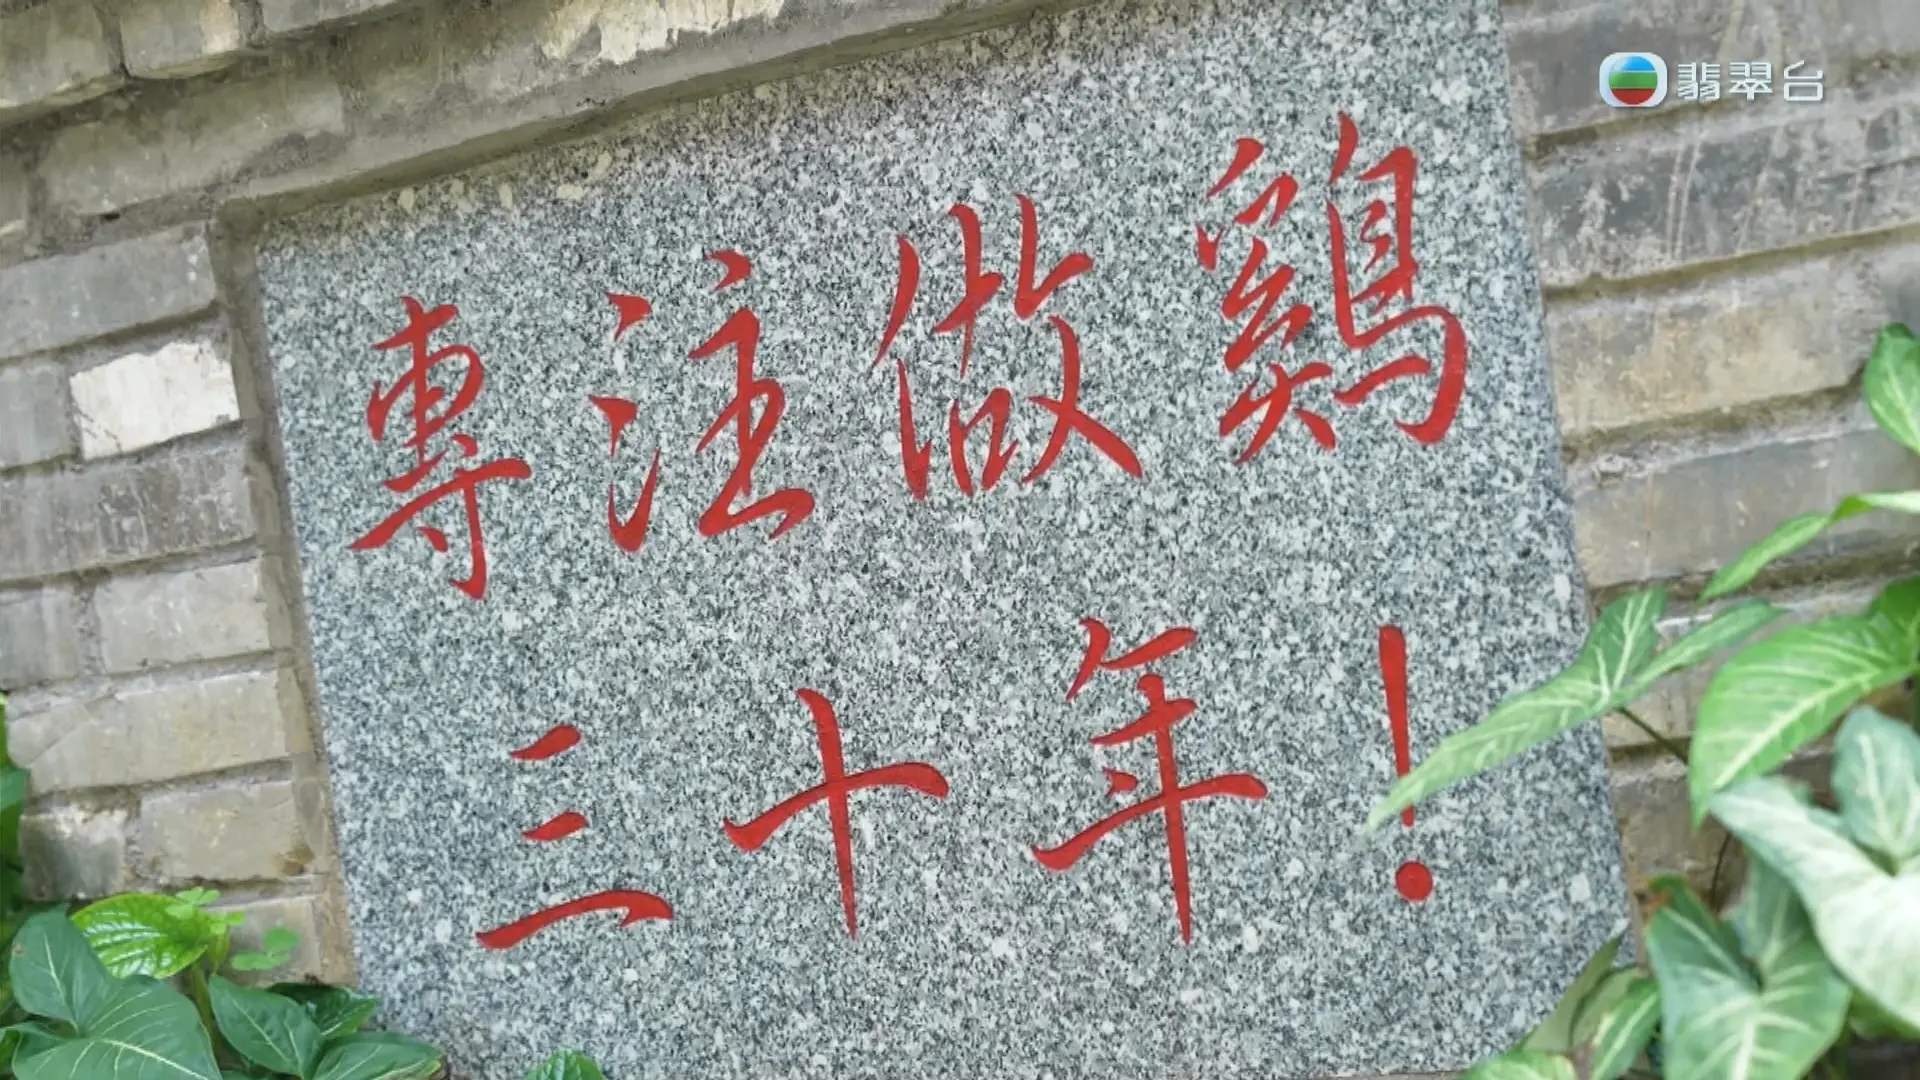 翡翠台
專注做鷄
三十年！